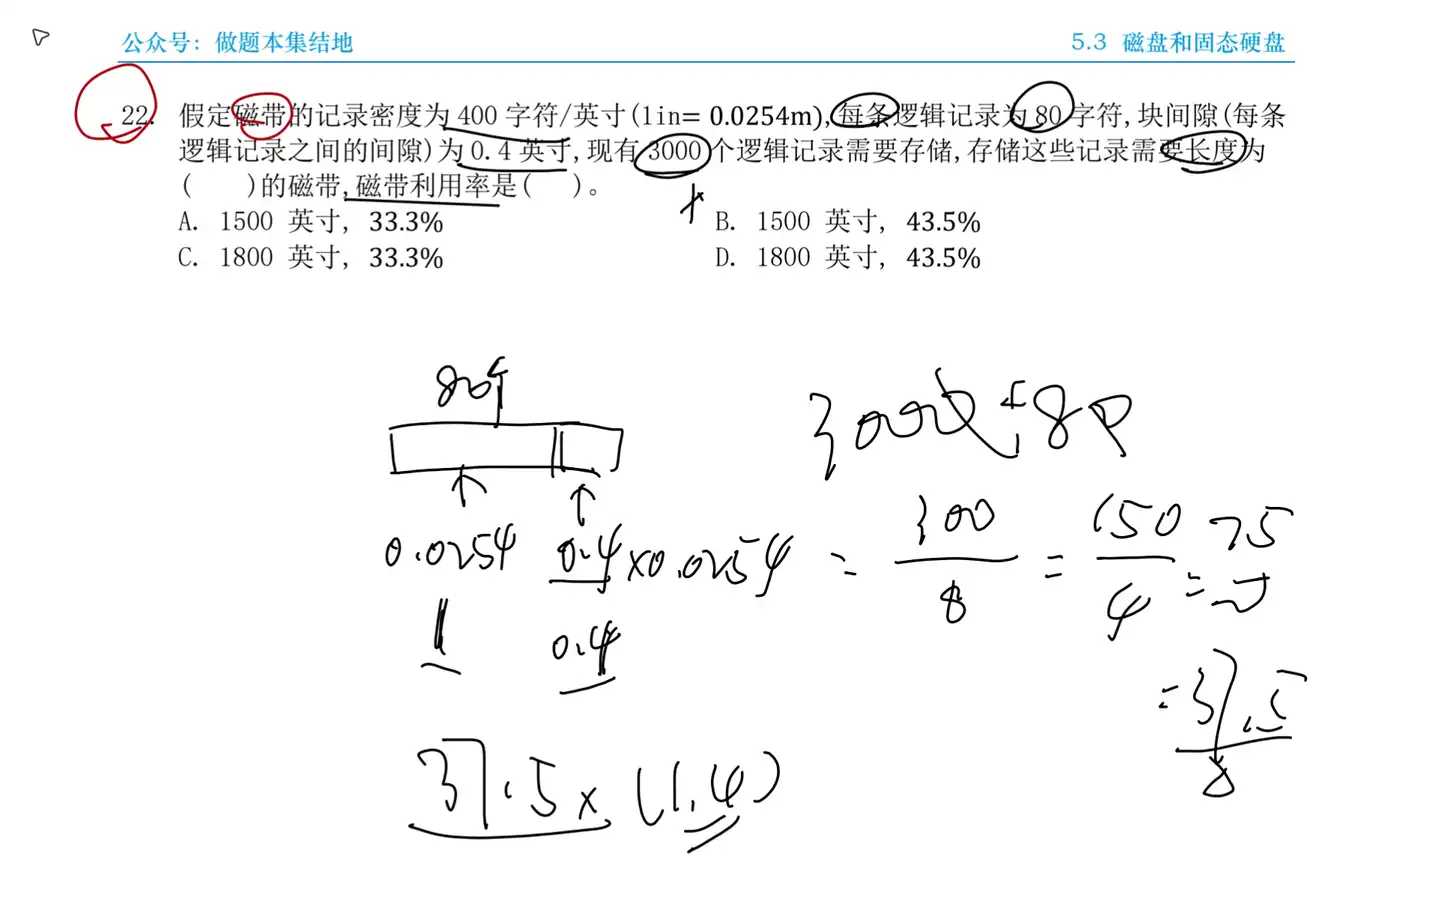 公众号：做题本集结地
5.3 磁盘和固态硬盘
22. 假定磁带的记录密度为 400 字符/英寸(1in= 0.0254m),每条逻辑记录为 80 字符,块间隙(每条
逻辑记录之间的间隙)为 0.4 英寸,现有 3000 个逻辑记录需要存储,存储这些记录需要长度为
(    )的磁带,磁带利用率是(    )。
A. 1500 英寸, 33.3%
B. 1500 英寸, 43.5%
C. 1800 英寸, 33.3%
D. 1800 英寸, 43.5%
80个
0.0254 0.4×0.0254
1 0.4
37.5×(1.4)
3000个÷80
= 300/8 = 150/4 = 75/2
=37.5